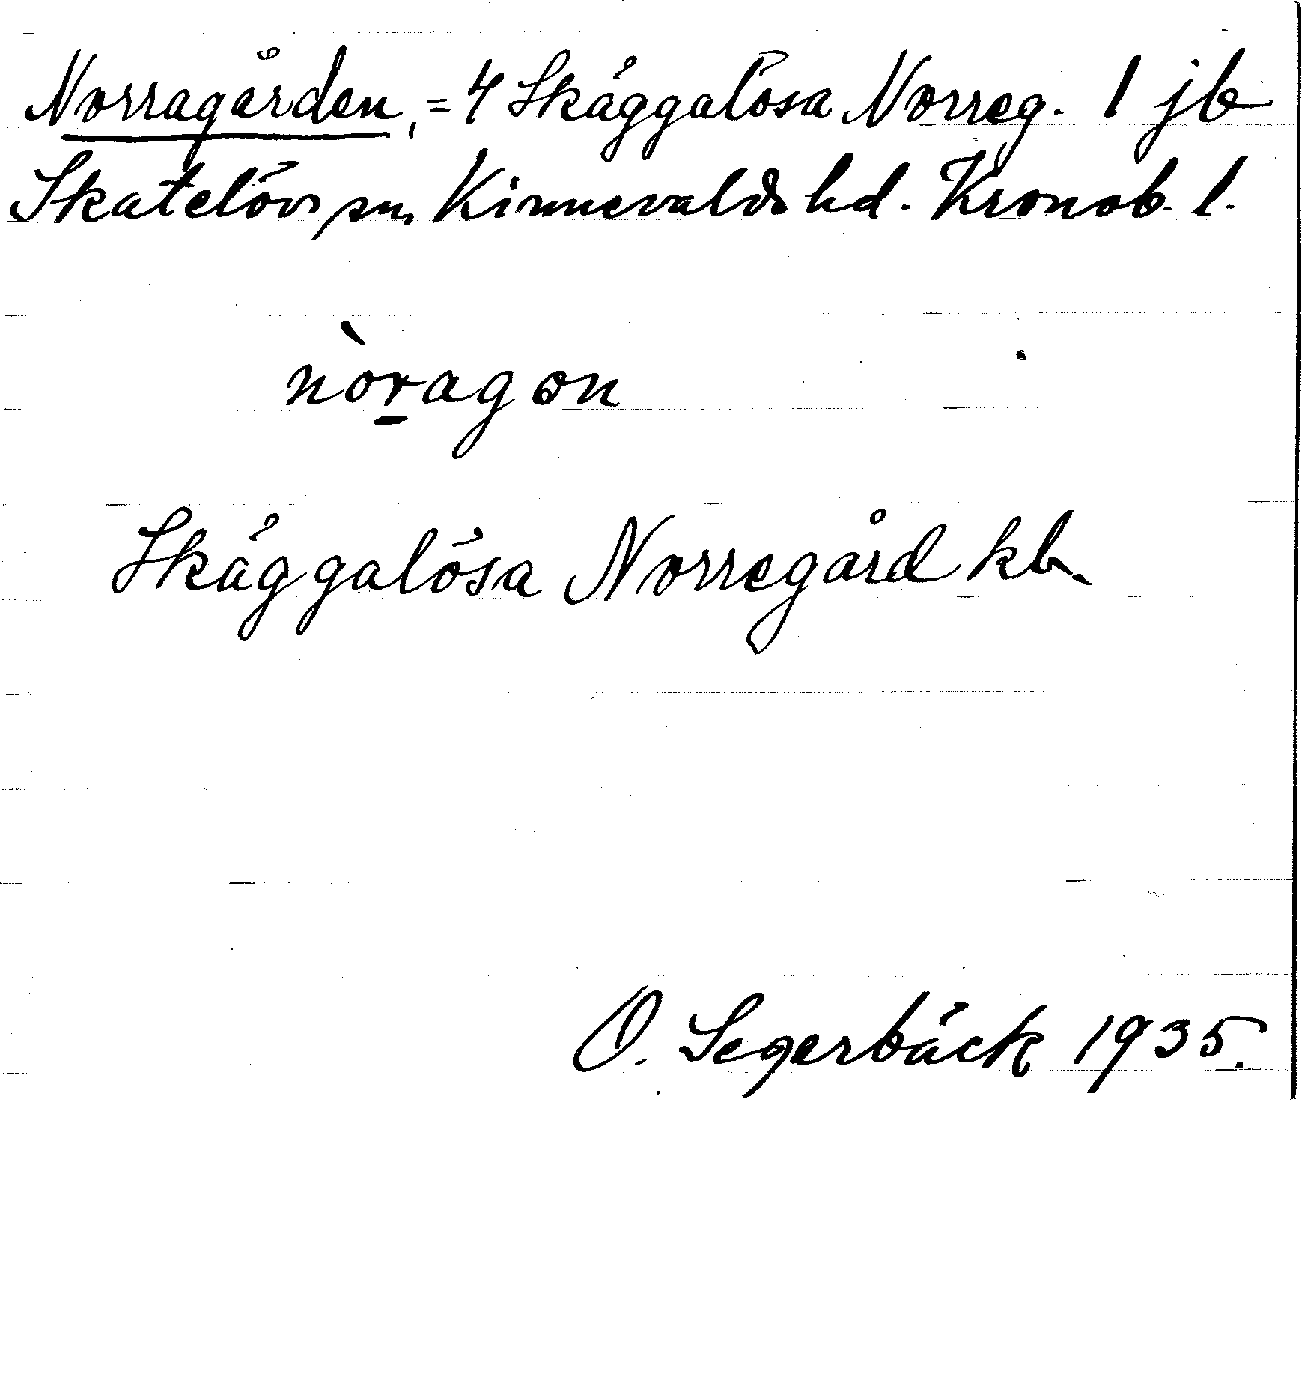 Norragården, = 4 Skäggalösa Norreg. 1 jb
Skatelövs sn, Kinnevalds hd. Kronob. l.
nòragon
Skäggalösa Norregård kb.
O. Segerbäck 1935.